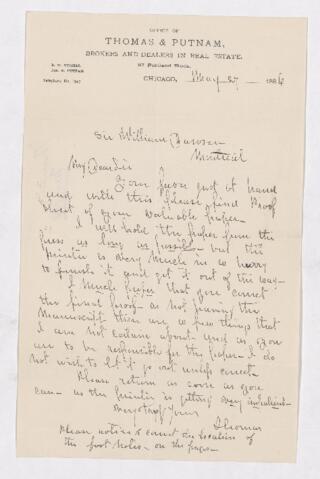 OFFICE OF
THOMAS & PUTNAM,
BROKERS AND DEALERS IN REAL ESTATE,
CHICAGO, May 27 1886
Sir William Dawson
Montreal
My Dear Sir
Your favor just at hand
and with this please find Proof
sheet of your valuable paper.
I will hold the paper from the
press as long as possible but the
printer is very much in a hurry
to finish it and get it out of the way.
I much prefer that you correct
the final proof as not having the
Manuscript there are a few things that
I am not certain about and as you
are to be responsible for the paper I do
not wish to let it go out unless correct.
Please return as soon as you
can as the printer is getting very impatient.
Very truly yours
Thomas
Please notice & correct the location of
the foot notes on the pages.